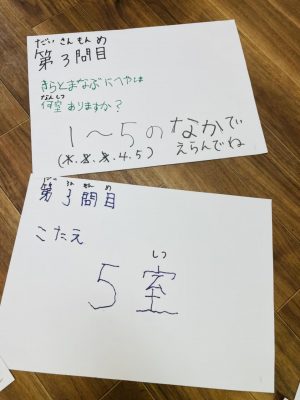 だい さん もん め
第3問目
きらとまなぶにへやは
なんしつ
何室ありますか?
1〜5のなかで
えらんでね
(1.2.3.4.5)
だい さん もん め
第3問目
こたえ
しつ
5室